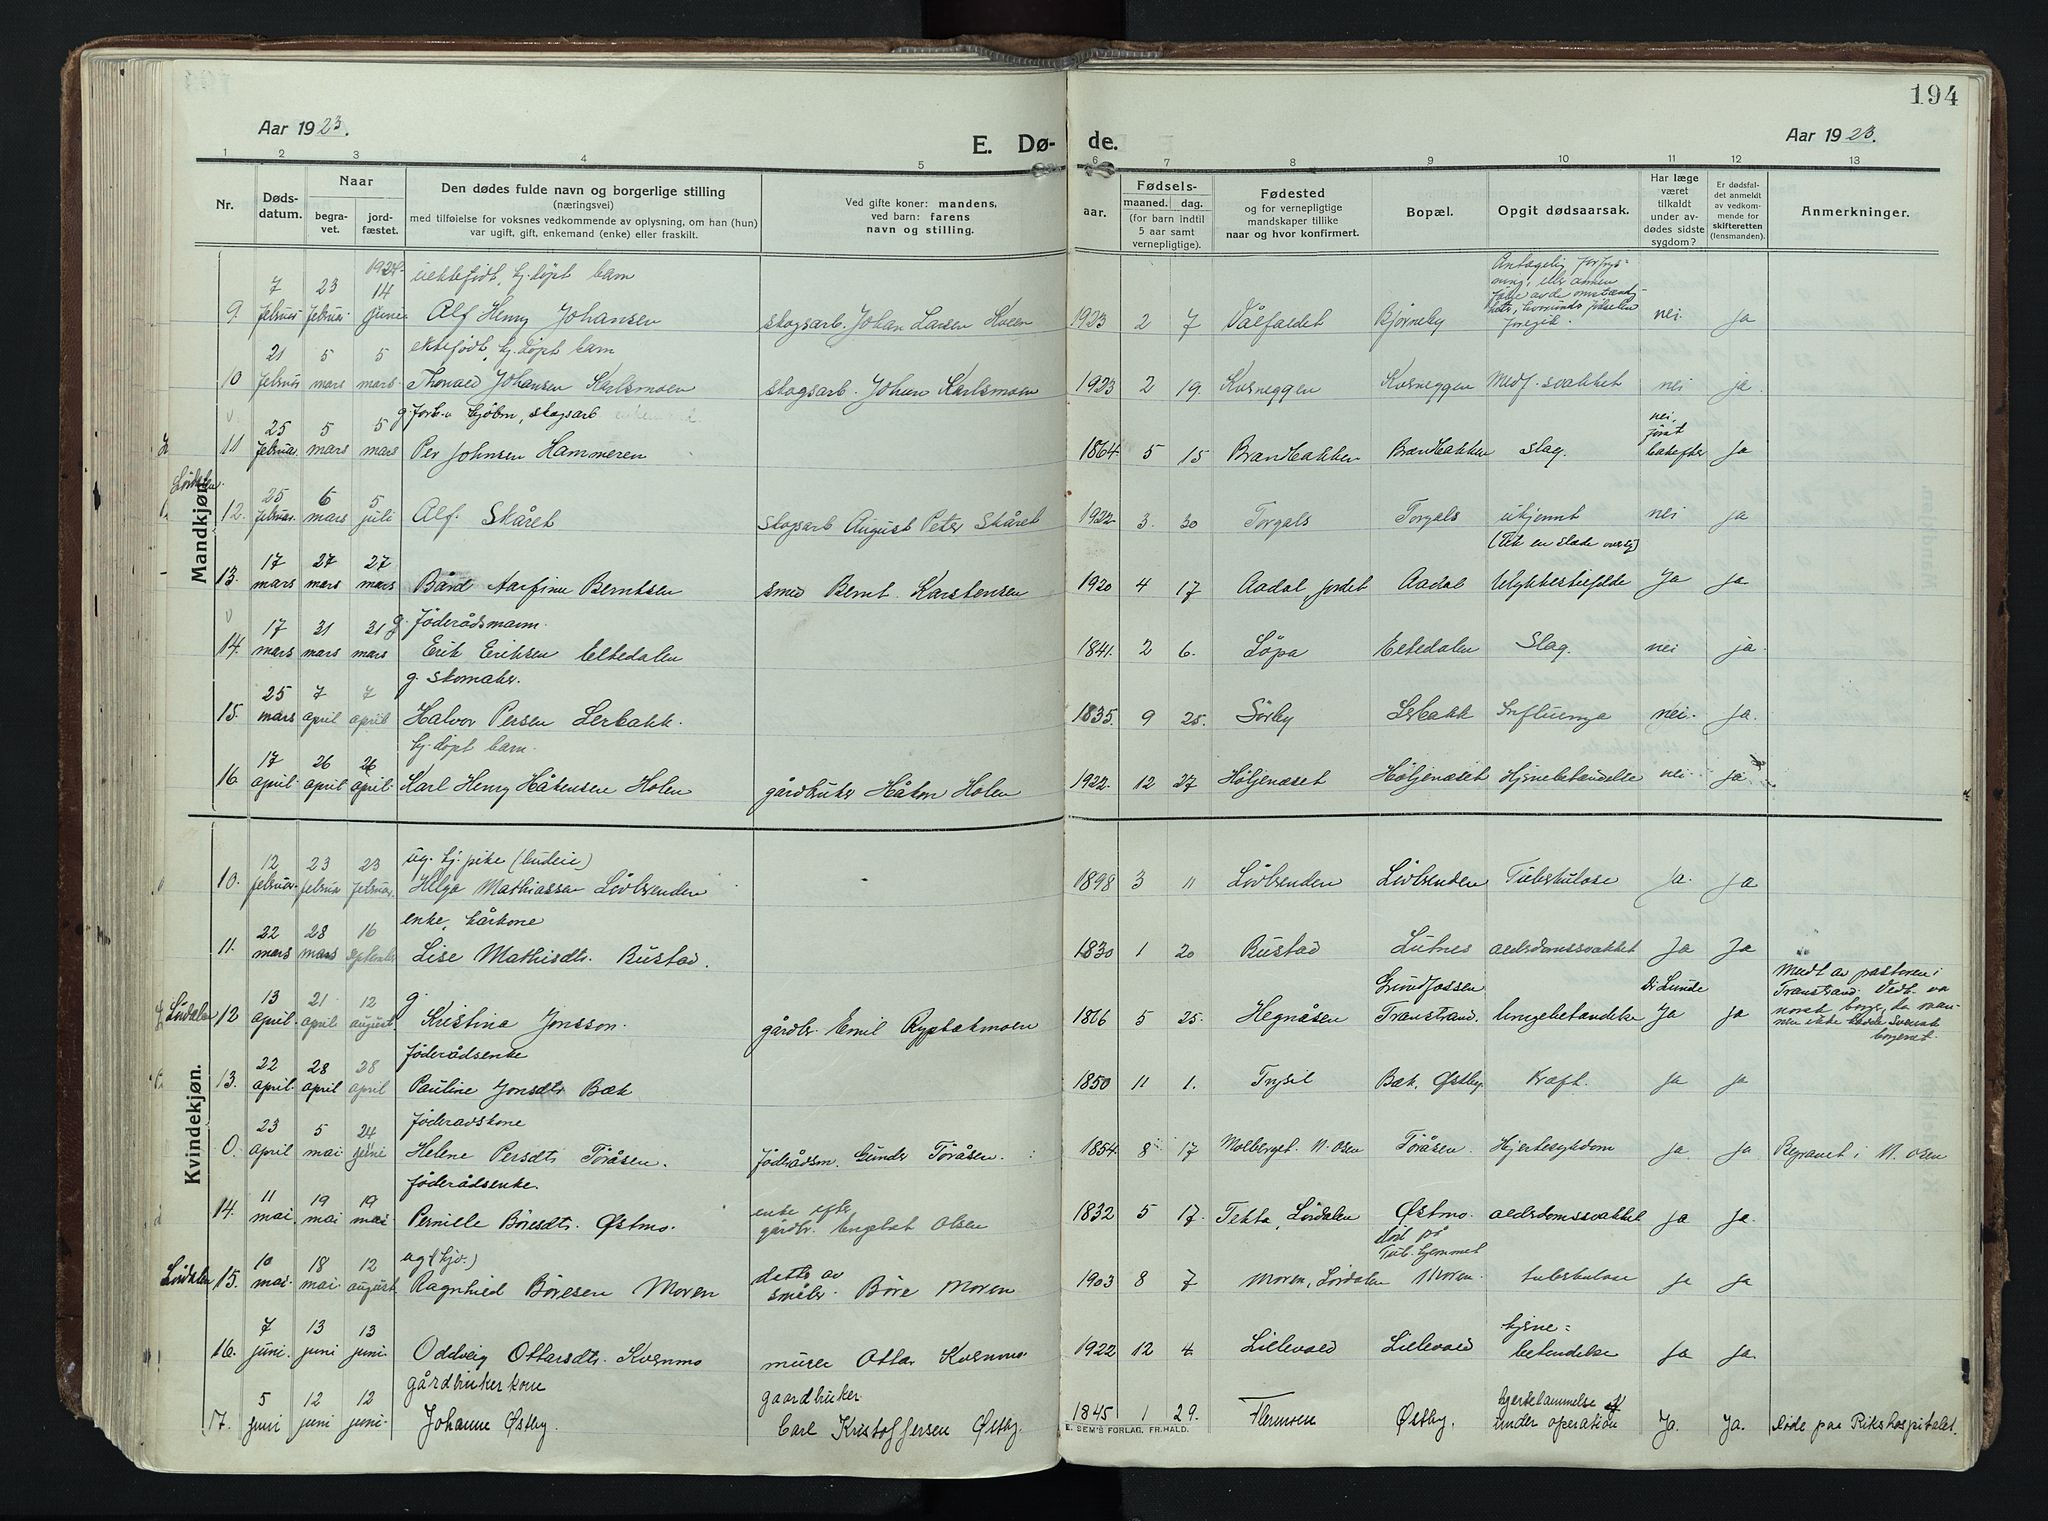 194
Aar 1923.
E. Dø- de.
Aar 1923.
1 2 3 4 5 6 7 8 9 10 11 12 13
Nr.
Døds-
datum.
Naar
begra-
vet.
jord-
fæstet.
Den dødes fulde navn og borgerlige stilling
(næringsvei)
med tilføielse for voksnes vedkommende av oplysning, om han (hun)
var ugift, gift, enkemand (enke) eller fraskilt.
Ved gifte koner: mandens,
ved barn: farens
navn og stilling.
Fødsels-
aar. maaned. dag.
(for barn indtil
5 aar samt
vernepligtige).
Fødested
og for vernepligtige
mandskaper tillike
naar og hvor konfirmert.
Bopæl.
Opgit dødsaarsak.
Har læge
været
tilkaldt
under av-
dødes sidste
sygdom?
Er dødsfal-
det anmeldt
av vedkom-
mende for
skifteretten
(lensmanden).
Anmerkninger.
Mandkjøn.
1924
7 23 14 ektefødt, hj.døpt barn
9. februar februar juni Alf Henry Johansen skogsarb. Johan Larsen Kveen 1923 2 7 Vålfaldet Bjørneby nei ja
21 5 5 ektefødt, hj.døpt barn
10 februar mars mars Thorvald Johansen Karlsmoen skogsarb. Johan Karlsmoen 1923 2 19. Kverneggen Kverneggen Medf. svakhet nei ja
25 5 5 skogsarb
nei,
først
11 februar mars mars Per Johnsen Hammeren 1864 5 15 Brændbakken Brændbakken Slag. bakefter ja
Lørdalen
25 6 5
12. februar mars juli Alf. Skåret skogsarb August Peter Skåret 1922 3. 30 Torgals Torgals ukjennt nei ja
17 27 27 (fik en slæde over sig)
13. mars mars mars Bård Aarfinn Berntsen smed Bernt Karstensen 1920 4 17 Aadal, jordet Aadal Ulykkestilfælde Ja Ja
17 31 31 g føderådsmann.
14. mars mars mars Erik Eriksen Eltedalen 1841. 2 6. Løpa Eltedalen Slag. nei ja.
25 7 7 g. skomaker.
15. mars april april Halvor Persen Lerbakk. 1835. 9 25. Sørby Lerbakk Influenza nei. ja.
17 26 26 hj.døpt barn.
16 april april april Karl Henry Håkensen Holen gårdbruker Håkon Holen 1922. 12 27 Høljenæset Høljenæset Hjernebetændelse nei ja
Kvindekjøn.
12 23 23 ug. hj. pike (budeie)
10. februar februar februar Helga Mathiassen Løvbrenden 1898 3 11 Løvbrenden Løvbrenden Tuberkulose Ja. ja
22 28 16 enke, kårkone
11. mars mars september Lise Mathisdtr. Bustad. 1830 1 20 Bustad Lutnes alderdomssvakhet Ja Ja
Lørdalen
13 21 12 g Grundfossen Dr Lunde
12 april april august Kristina Jonsson. gårdbr. Emil Ryptakmoen 1876 5 25. Hegnåsen Transtrand. lungebetændelse Ja Ja
Medt av pastoren i
Transtrand. Vedk. va
norsk borger, da man-
nen ikke hadde svensk
borgerret.
22 28 28 føderådsenke
13. april april april Pauline Jonsdtr Bæk 1850 11 1. Trysil Bæk, Østby. Kræft. ja ja
23 5 24 føderådskone
0. april mai juni Helene Persdtr Tøråsen. føderådsm. Gunder Tøråsen. 1854. 8 17 Molberget. N. Osen Tøråsen. Hjertesykdom ja. ja Begravet i N. Osen
11 19 19 føderådsenke.
14. mai mai mai Pernille Børesdtr. Østmo. enke efter
gårdbr. Engebret Olsen 1832 5 17. Tekta, Lørdalen Østmo. alderdomssvakhet ja ja.
Lørdalen
10 18 12 ug (hjv.) død på
Tub. hjemmet
15. mai mai august Ragnhild Børesen Moren datter av
småbr. Børe Moren 1903 8 7 Moren, Lørdalen Moren. tuberkulose ja ja
7 13 13 hjerne=
16. juni juni juni Oddveig Ottarsdtr. Kvernmo murer Ottar Kvernmo 1922 12 4. Lillevold Lillevold betendelse Ja ja.
5 12 12 gårdbruker kone gaardbruker.
17. juni juni juni. Johanne Østby. Carl Kristoffersen Østby. 1845 1 29. Flermoen Østby. hjertelammelse
under operation Ja. Ja. døde paa Rikshospitalet.
E. SEM'S FORLAG, FR.HALD.